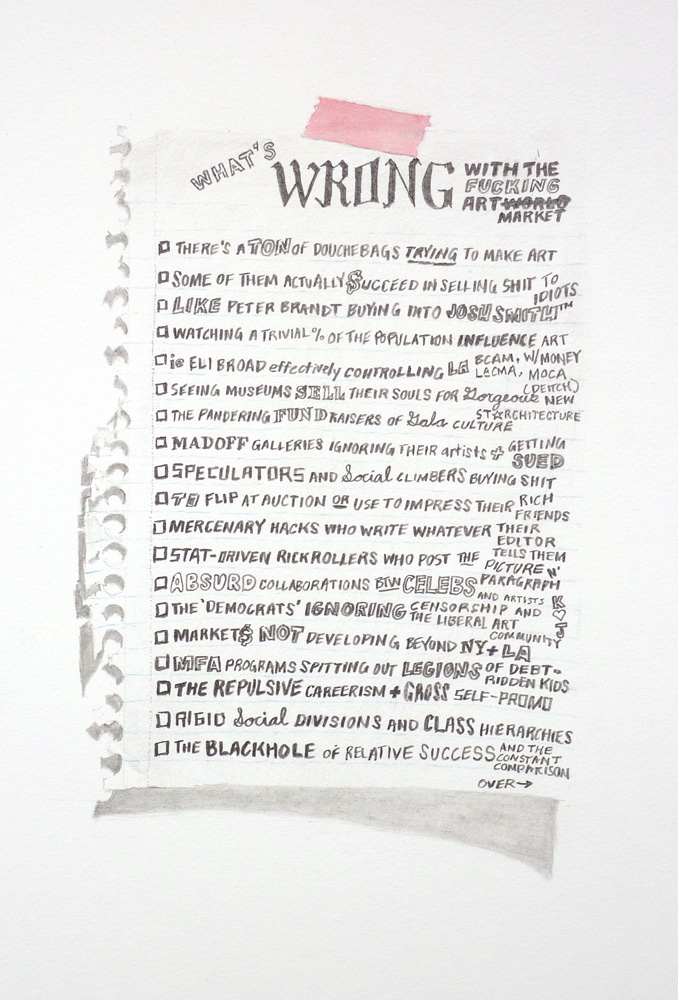 WHAT'S WRONG WITH THE
FUCKING
ART WORLD
MARKET
THERE'S A TON OF DOUCHEBAGS TRYING TO MAKE ART
SOME OF THEM ACTUALLY $UCCEED IN SELLING SHIT TO
IDIOTS
LIKE PETER BRANDT BUYING INTO JOSH SMITH™
WATCHING A TRIVIAL % OF THE POPULATION INFLUENCE ART
ie ELI BROAD effectively CONTROLLING LA BCAM, W/MONEY
LACMA, MOCA
(DEITCH)
SEEING MUSEUMS SELL THEIR SOULS FOR Gorgeous NEW
ST☆RCHITECTURE
THE PANDERING FUNDRAISERS OF Gala CULTURE
MADOFF GALLERIES IGNORING THEIR artists + GETTING
SUED
SPECULATORS AND Social CLIMBERS BUYING SHIT
TO FLIP AT AUCTION OR USE TO IMPRESS THEIR RICH
FRIENDS
MERCENARY HACKS WHO WRITE WHATEVER THEIR
EDITOR
TELLS THEM
STAT-DRIVEN RICKROLLERS WHO POST THE PICTURE N'
PARAGRAPH
ABSURD COLLABORATIONS BTW CELEBS AND ARTISTS
K♡J
THE 'DEMOCRATS' IGNORING CENSORSHIP AND
THE LIBERAL ART
COMMUNITY
MARKET$ NOT DEVELOPING BEYOND NY + LA
MFA PROGRAMS SPITTING OUT LEGIONS OF DEBT-
RIDDEN KIDS
THE REPULSIVE CAREERISM + GROSS SELF-PROMO
RIGID Social DIVISIONS AND CLASS HIERARCHIES
THE BLACKHOLE OF RELATIVE SUCCESS AND THE
CONSTANT
COMPARISON
OVER→